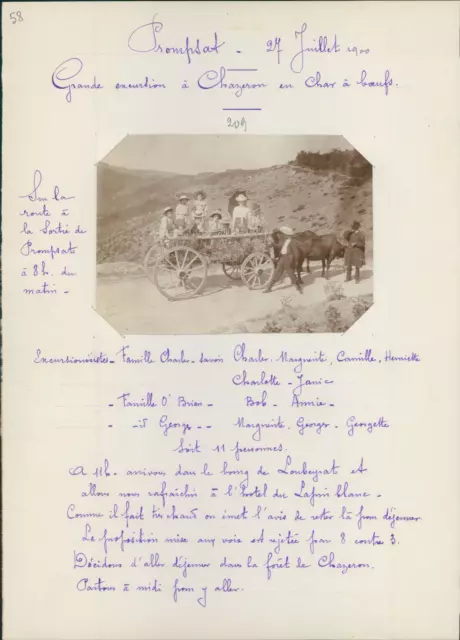 58
Prompsat - 27 Juillet 1900
Grande excursion à Chazeron en Char à bœufs.
209
Sur la
route à
la Sortie de
Prompsat
à 8h. du
matin -
Excursionnistes - Famille Charles - savoir Charles. Marguerite, Camille, Henriette
Charlotte - Janie
- Famille O'Brien - Bob - Annie -
- George - - Marguerite, Georges - Georgette
Soit 11 personnes.
A 11h. arrivons dans le bourg de Loubeyrat et
allons nous rafraîchir à l'hotel du Lapin blanc -
Comme il fait très chaud on émet l'avis de rester là pour déjeuner
La proposition mise aux voix est rejetée par 8 contre 3.
Décidons d'aller déjeuner dans la forêt de Chazeron.
Partons à midi pour y aller.